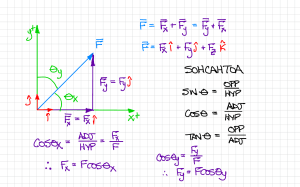 y+
F⃗
θy
θx
ĵ
î
x+
F⃗y = Fy ĵ
F⃗x = Fx î
F⃗ = F⃗x + F⃗y = F⃗y + F⃗x
F⃗ = Fx î + Fy ĵ + Fz k̂
SOHCAHTOA
SIN θ = OPP/HYP
COS θ = ADJ/HYP
TAN θ = OPP/ADJ
COS θx = ADJ/HYP = Fx/F
∴ Fx = F cos θx
COS θy = Fy/F
∴ Fy = F cos θy